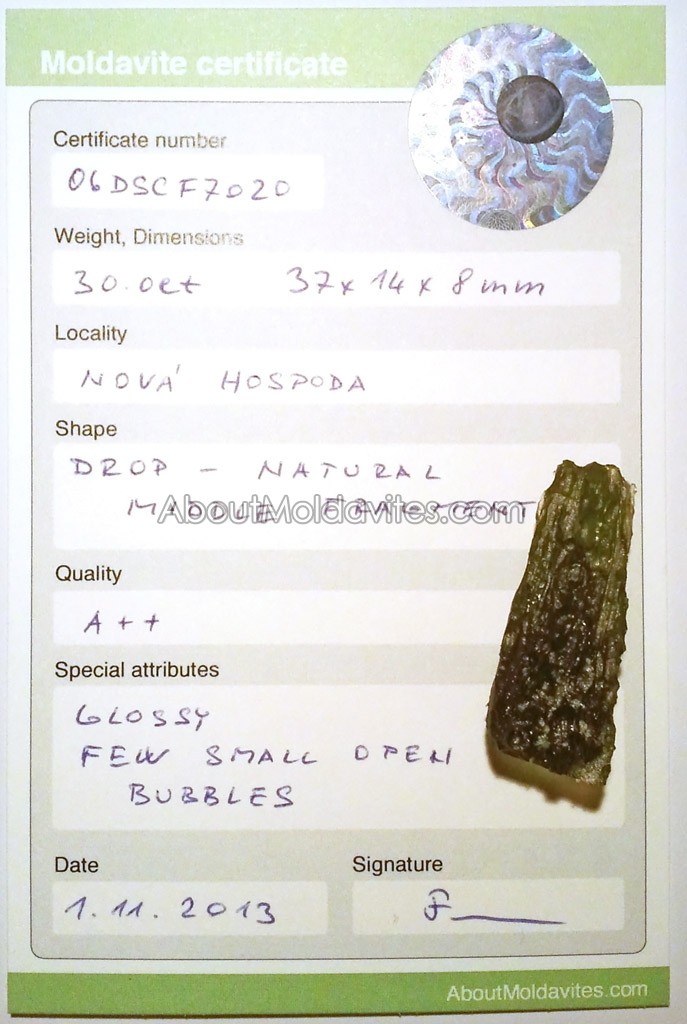 Moldavite certificate
Certificate number
06DSCF7020
Weight, Dimensions
30.0ct 37x14x8mm
Locality
NOVÁ HOSPODA
Shape
DROP - NATURAL
MIDDLE FRAGMENT
AboutMoldavites.com
Quality
A++
Special attributes
GLOSSY
FEW SMALL OPEN
BUBBLES
Date Signature
1.11.2013 F
AboutMoldavites.com